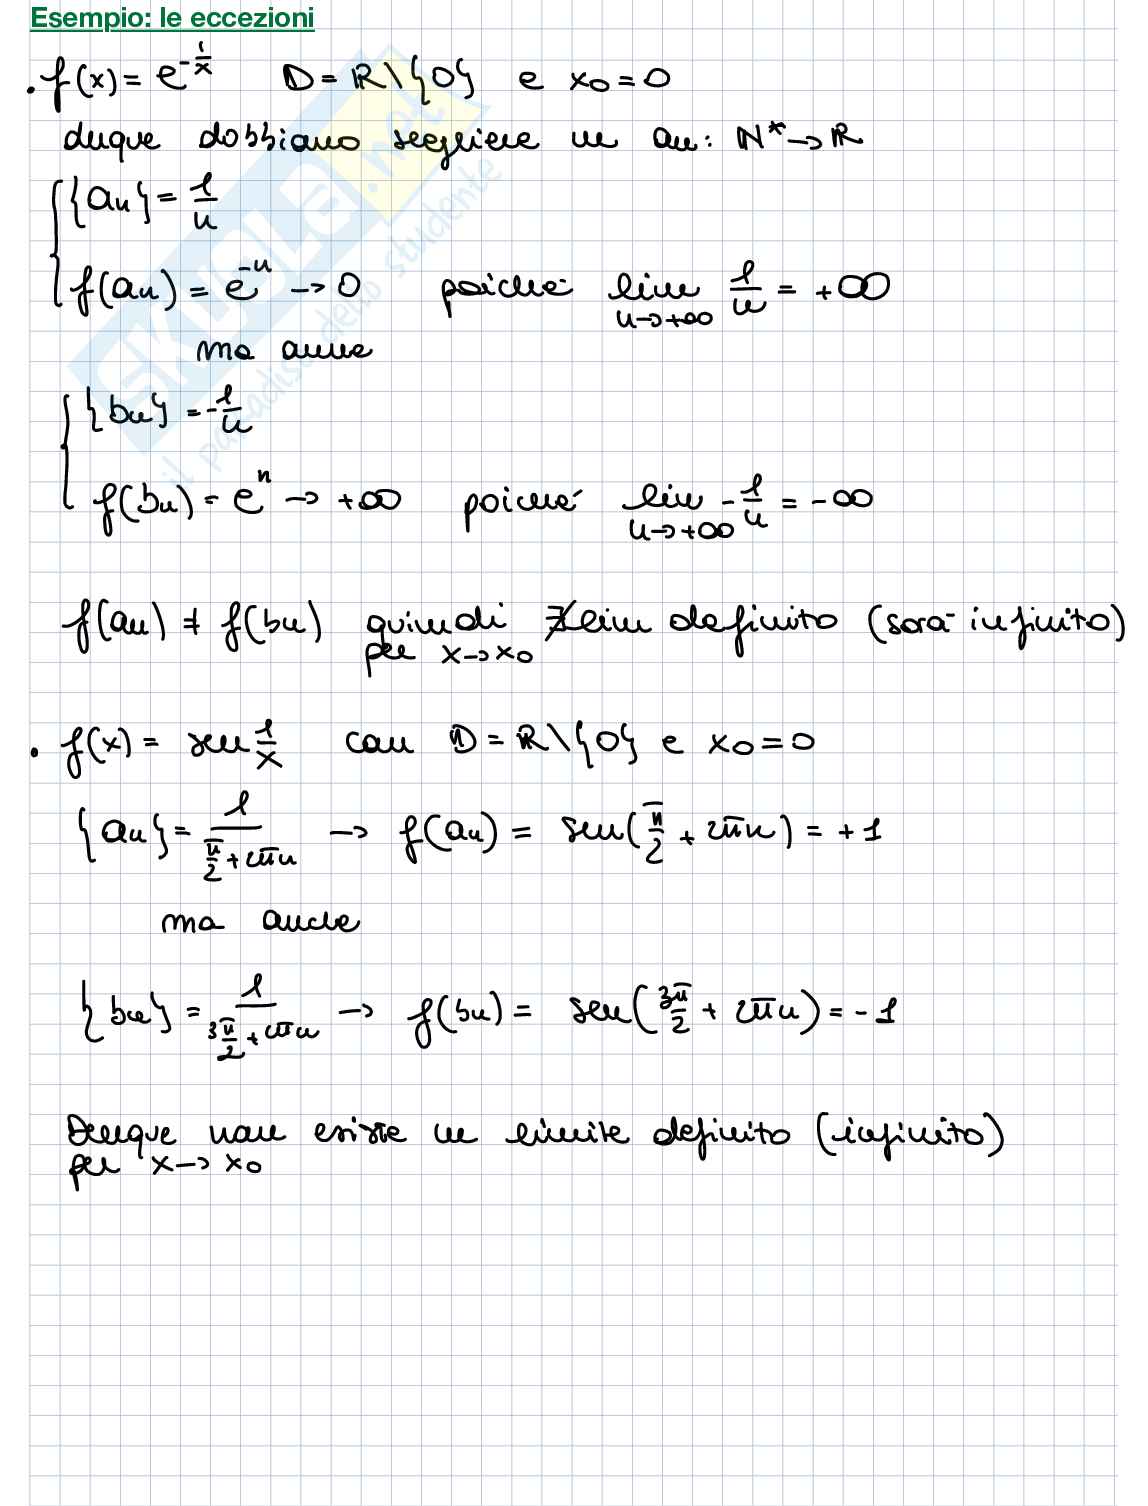 Esempio: le eccezioni
• f(x) = e^{-1/x} D = ℝ\{0} e x₀ = 0
duque dobbiamo scegliere un an: ℕ* → ℝ
{an} = 1/n
f(an) = e^{-n} → 0 poiché lim_{n→+∞} 1/n = +∞
ma anche
{bn} = -1/n
f(bn) = e^n → +∞ poiché lim_{n→+∞} -1/n = -∞
f(an) ≠ f(bn) quindi ∄ lim definito (sarà infinito)
per x → x₀
• f(x) = sen 1/x con D = ℝ\{0} e x₀ = 0
{an} = 1/(π/2 + 2πn) → f(an) = sen(π/2 + 2πn) = +1
ma anche
{bn} = 1/(3π/2 + 2πn) → f(bn) = sen(3π/2 + 2πn) = -1
Dunque non esiste un limite definito (infinito)
per x → x₀
SKUOLA.net
il paradiso dello studente